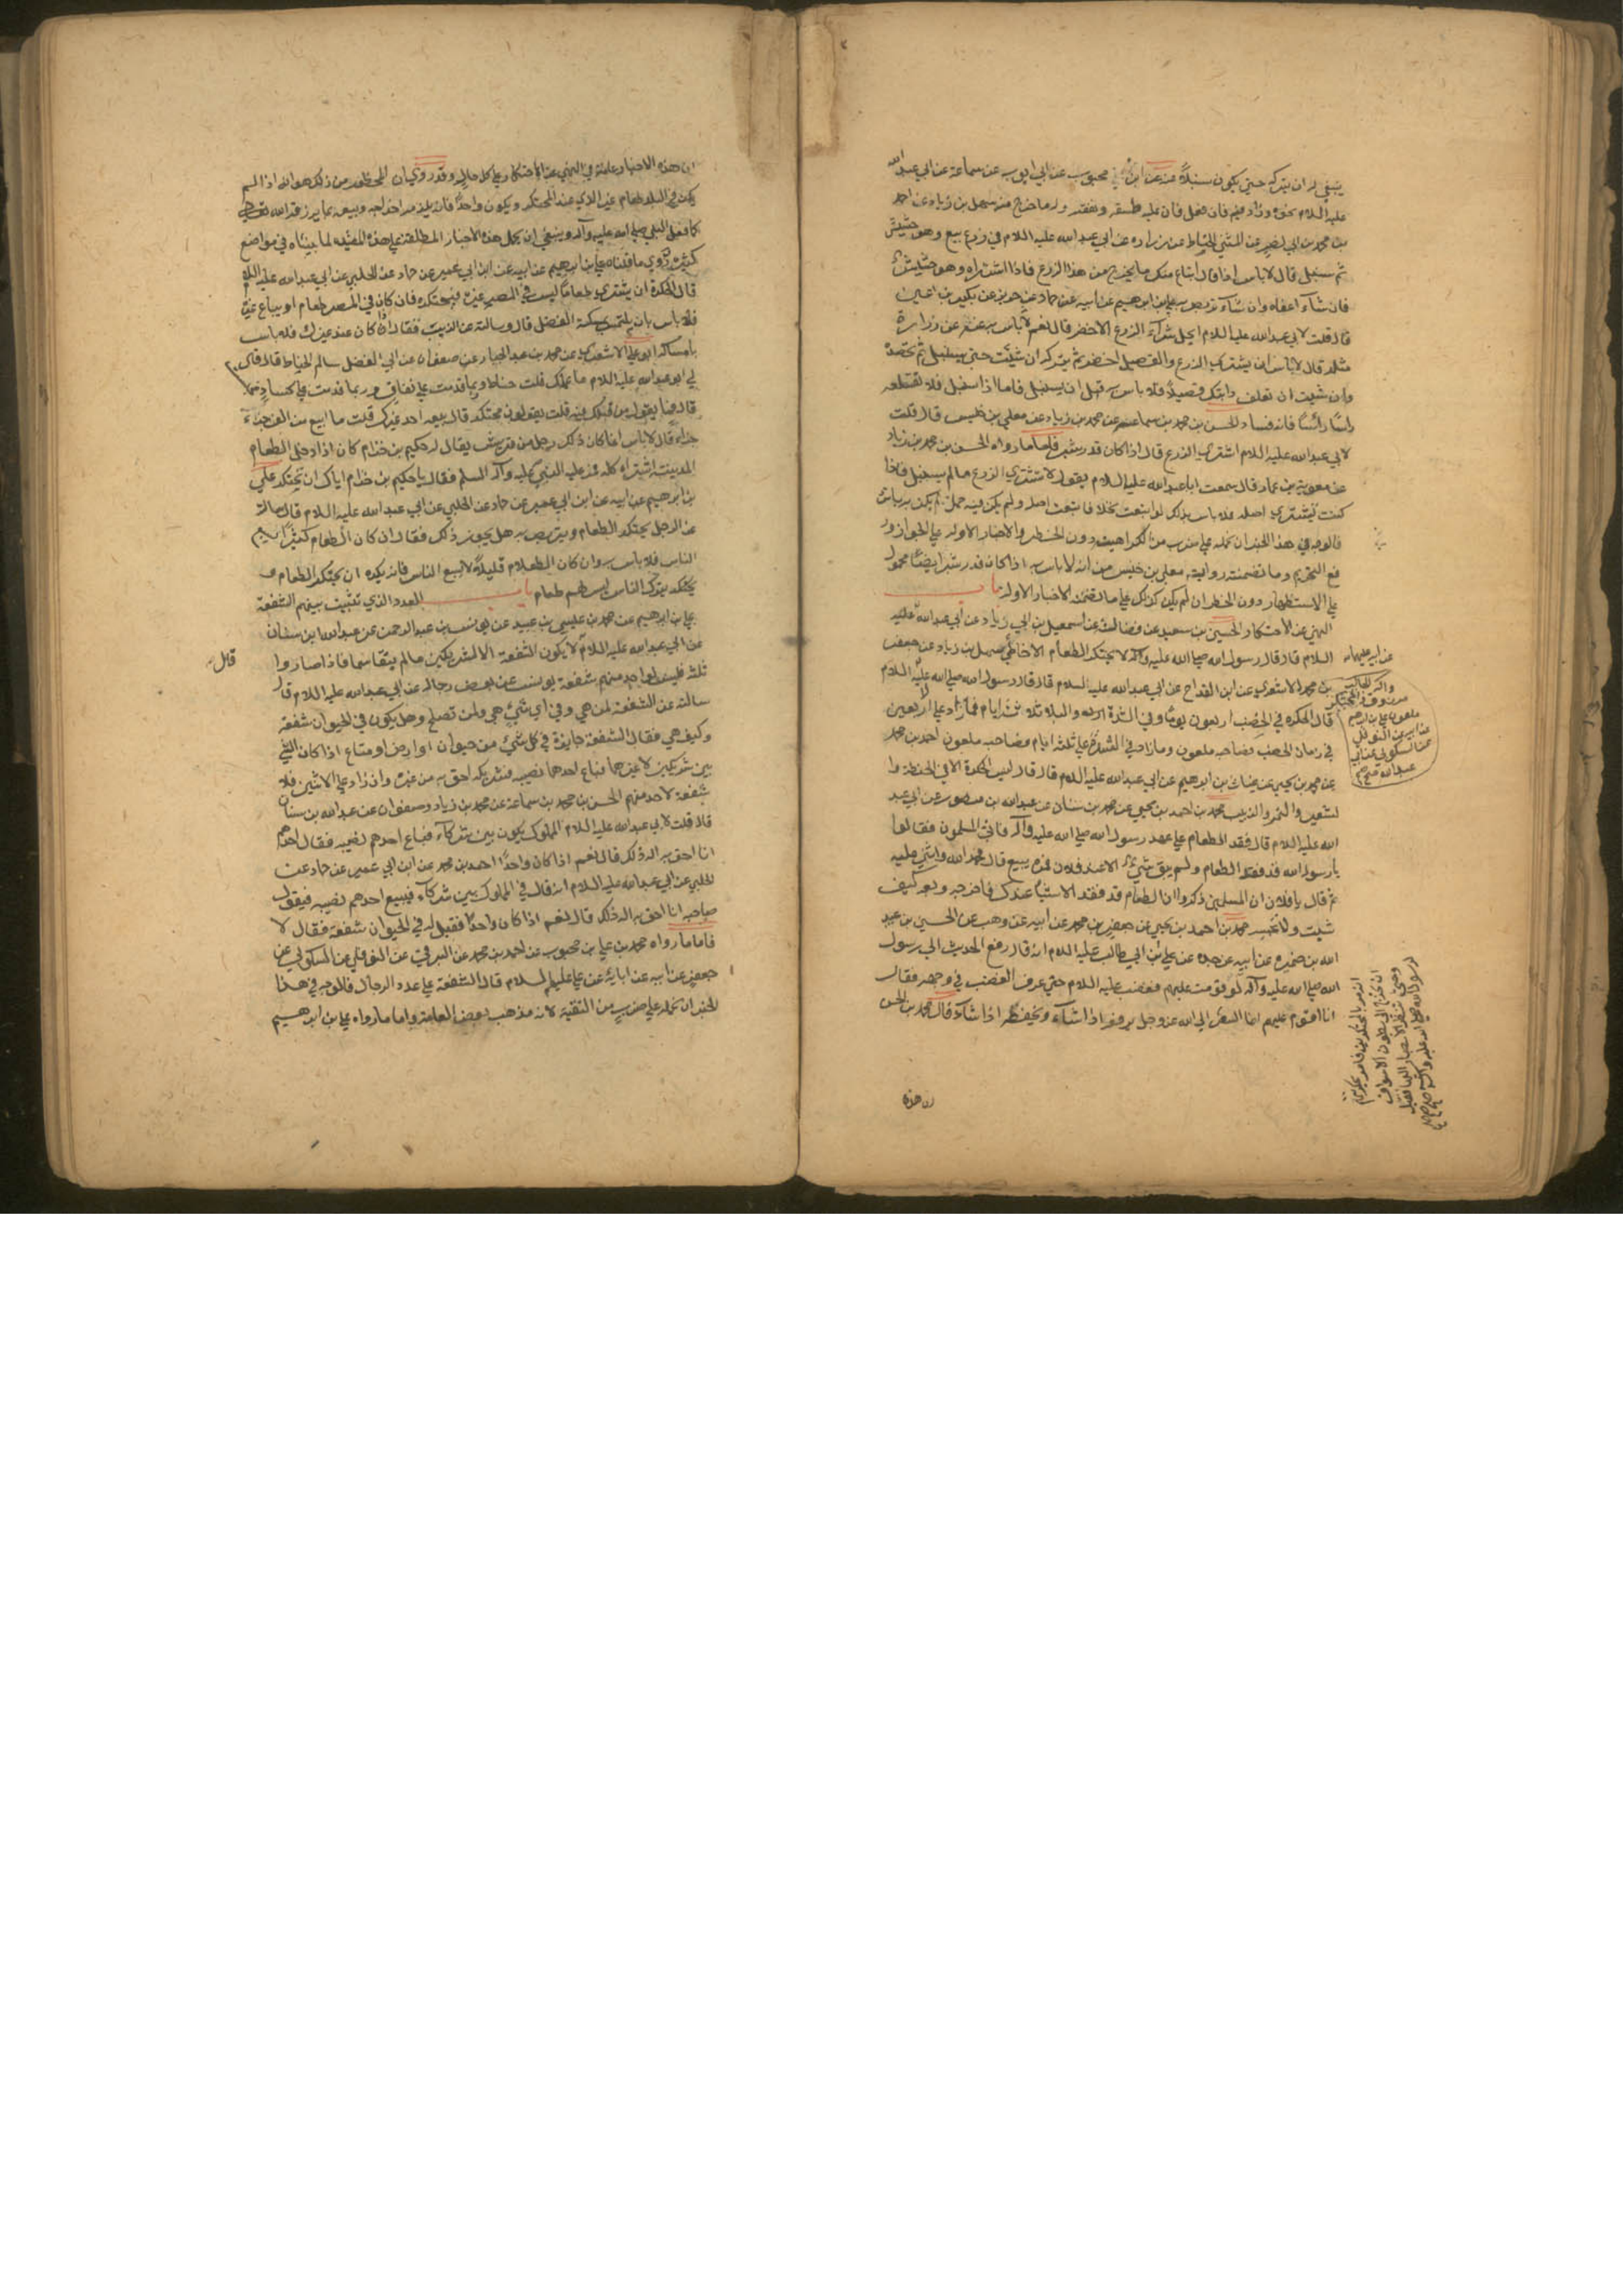 ينبغي له ان يتركه حتى يكون سنبلا عنه عن ابن محبوب عن ابي ايوب عن سماعة عن ابي عبد الله
عليه السلام نحوه وزاد فيه فان فعل فان عليه طسقه ونفقته وله ما خرج منه سهل بن زياد عن احمد
بن محمد بن ابي نصر عن المثنى الحناط عن زرارة عن ابي عبد الله عليه السلام في زرع بيع وهو حشيش
ثم سنبل قال لا باس اذا قال ابتاع منك ما يخرج من هذا الزرع فاذا اشتراه وهو حشيش
فان شاء اعفاه وان شاء تربص به علي بن ابرهيم عن ابيه عن حماد عن حريز عن بكير بن اعين
قال قلت لابي عبد الله عليه السلام ايحل شراء الزرع الاخضر قال نعم لا باس به عنه عن زرارة
مثله قال لا باس ان يشتري الزرع والقصيل اخضر ثم يتركه ان شئت حتى يسنبل ثم تحصده
وان شئت ان تعلف دابتك قصيلا فلا باس به قبل ان يسنبل فاما اذا سنبل فلا تقطعه
راسا راسا فانه فساد الحسن بن محمد بن سماعة عن محمد بن زياد عن معلى بن خنيس قال قلت
لابي عبد الله عليه السلام اشتري الزرع قال اذا كان قدر شبر فاما ما رواه الحسن بن محمد بن زياد
عن معوية بن عمار قال سمعت ابا عبد الله عليه السلام يقول لا تشتري الزرع ما لم يسنبل فاذا
كنت تشتري اصله فلا باس بذلك لو ابتعت نخلا فابتعت اصله ولم يكن فيه حمل لم يكن به باس
فالوجه في هذا الخبر ان نحمله على ضرب من الكراهية دون الحظر والاخبار الاوله على الجواز ور
فع التحريم وما تضمنته رواية معلى بن خنيس من انه لا باس به اذا كان قدر شبر ايضا محمول
على الاستظهار دون الحظر ان لم يكن كذلك على ما تضمنه الاخبار الاوله باب
النهي عن الاحتكار الحسين بن سعيد عن فضالة عن اسمعيل بن ابي زياد عن ابي عبد الله عليه
السلام قال قال رسول الله صلى الله عليه وآله لا يحتكر الطعام الا خاطئ سهل بن زياد عن جعفر
بن محمد الاشعري عن ابن القداح عن ابي عبد الله عليه السلام قال قال رسول الله صلى الله عليه السلام
قال الحكرة في الخصب اربعون يوما وفي الشدة والبلاء ثلاثة ايام فما زاد على الاربعين
في زمان الخصب فصاحبه ملعون وما زاد في الشدة على ثلثة ايام فصاحبه ملعون احمد بن محمد
عن محمد بن يحيى عن غياث بن ابرهيم عن ابي عبد الله عليه السلام قال قال ليس الحكرة الا في الحنطة وا
لشعير والتمر والزبيب محمد بن احمد بن يحيى عن محمد بن سنان عن عبد الله بن منصور عن ابي عبد
الله عليه السلام قال فقد الطعام على عهد رسول الله صلى الله عليه وآله فاتى المسلمون فقالوا
يا رسول الله قد فقد الطعام ولم يبق شئ الا عند فلان فمره يبيع قال فحمد الله واثنى عليه
ثم قال يا فلان ان المسلمين ذكروا ان الطعام قد فقد الا شيئا عندك فاخرجه وبعه كيف
شئت ولا تحبسه محمد بن احمد بن يحيى عن جعفر بن محمد عن ابيه عن وهب عن الحسين بن عبيد
الله بن ضمرة عن ابيه عن جده عن علي بن ابي طالب عليه السلام انه قال رفع الحديث الى رسول
الله صلى الله عليه وآله لو قومت عليهم فغضب عليه السلام حتى عرف الغضب في وجهه فقال
انا اقوم عليهم انما السعر الى الله عز وجل يرفعه اذا شاء ويخفضه اذا شاء قال محمد بن الحسن
عن ابيه عليهما
وآله الجالب
مرزوق والمحتكر
ملعون علي بن ابرهيم
عن ابيه عن النوفلي
عن السكوني عن ابي
عبد الله صح
انه مر بالمحتكرين فامر بحكرتهم
ان تخرج الى بطون الاسواق
وحيث تنظر الابصار اليها فقيل
لرسول الله صلى الله عليه وآله صح
ان هذه
ان هذه الاخبار عامة في النهي عن الاحتكار على كل حال وقد روي ان المحظور من ذلك هو انه اذا لم
يكن في البلد طعام غير الذي عند المحتكر ويكون واحدا فانه يلزمه اخراجه وبيعه بما يرزقه الله تعالى
كما فعل النبي صلى الله عليه وآله وينبغي ان يحمل هذه الاخبار المطلقة على هذه المقيدة لما بيناه في مواضع
كثيرة روي ما قلناه علي بن ابرهيم عن ابيه عن ابن ابي عمير عن حماد عن الحلبي عن ابي عبد الله عليه السلام
قال الحكرة ان يشتري طعاما ليس في المصر غيره فيحتكره فان كان في المصر طعام او يباع غيره
فلا باس بان يلتمس بسلعته الفضل قال وسالته عن الزيت فقال اذا كان عند غيرك فلا باس
بامساكه ابو علي الاشعري عن محمد بن عبد الجبار عن صفوان عن ابي الفضل سالم الحناط قال قال
لي ابو عبد الله عليه السلام ما عملك قلت حناط وربما قدمت على نفاق وربما قدمت على كساد فحبست
قال فما يقول من قبلك فيه قلت يقولون محتكر قال يبيعه احد غيرك قلت ما ابيع من الف جزء
جزءا قال لا باس انما كان ذلك رجل من قريش يقال له حكيم بن حزام كان اذا دخل الطعام
المدينة اشتراه كله فمر عليه النبي عليه وآله السلم فقال يا حكيم بن حزام اياك ان تحتكر علي
بن ابرهيم عن ابيه عن ابن ابي عمير عن حماد عن الحلبي عن ابي عبد الله عليه السلام قال سالته
عن الرجل يحتكر الطعام ويتربص به هل يجوز ذلك فقال ان كان الطعام كثيرا يسع
الناس فلا باس به وان كان الطعام قليلا لا يسع الناس فانه يكره ان يحتكر الطعام و
يترك الناس ليس لهم طعام باب العدد الذي تثبت بينهم الشفعة
علي بن ابرهيم عن محمد بن عيسى بن عبيد عن يونس بن عبد الرحمن عن عبد الله بن سنان
عن ابي عبد الله عليه السلام لا يكون الشفعة الا لشريكين ما لم يتقاسما فاذا صاروا
قال
ثلثة فليس لواحد منهم شفعة يونس عن بعض رجاله عن ابي عبد الله عليه السلام قال
سالته عن الشفعة لمن هي وفي اي شئ هي ولمن تصلح وهل يكون في الحيوان شفعة
وكيف هي فقال الشفعة جايزة في كل شئ من حيوان او ارض او متاع اذا كان الشئ
بين شريكين لا غيرهما فباع احدهما نصيبه فشريكه احق به من غيره وان زاد على الاثنين فلا
شفعة لاحد منهم الحسن بن محمد بن سماعة عن محمد بن زياد وصفوان عن عبد الله بن سنان
قال قلت لابي عبد الله عليه السلام المملوك يكون بين شركاء فباع احدهم نصيبه فقال احدهم
انا احق به اله ذلك قال نعم اذا كان واحدا احمد بن محمد عن ابن ابي عمير عن حماد عن
الحلبي عن ابي عبد الله عليه السلام انه قال في المملوك بين شركاء فيبيع احدهم نصيبه فيقول
صاحبه انا احق به اله ذلك قال نعم اذا كان واحدا فقيل له في الحيوان شفعة فقال لا
فاما ما رواه محمد بن علي بن محبوب عن احمد بن محمد عن البرقي عن النوفلي عن السكوني عن
جعفر عن ابيه عن ابائه عن علي عليهم السلام قال الشفعة على عدد الرجال فالوجه في هذا
الخبر ان نحمله على ضرب من التقية لانه مذهب بعض العامة واما ما رواه علي بن ابرهيم